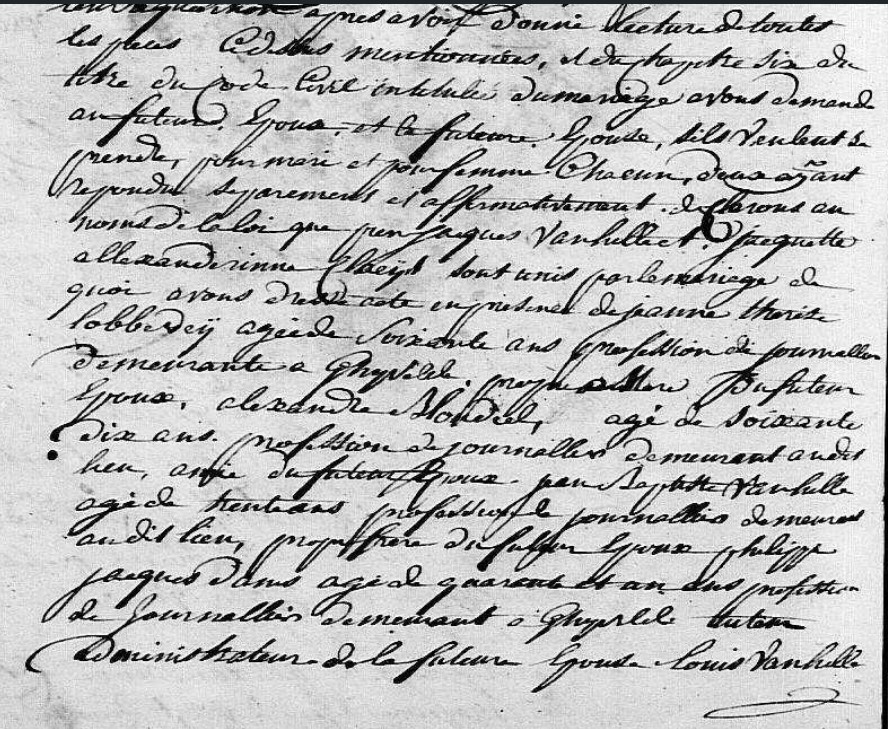 après avoir donné lecture de toutes
les pieces Cidessus mentionnées, et du chapitre six du
titre du Code Civil intitulé du mariage avons demandé
au futeur Epoux, et la futeure Epouse, sils veulent se
prendre, pour mari et pour femme Chacun, deux ayant
repondu separement et affirmativement. declarons au
noms de la loi que jean jacques Vanhille et jacquette
allexanderinne Claeys sont unis par le mariage de
quoi avons dressé acte en presence de jeanne therese
lobbedeÿ agée de Soixante ans profession de journallier
demeurante a Ghyvelde. propre mere du futeur
Epoux, alexandre Blondeel, agé de soixante
dix ans. profession de journallier demeurant audit
lieu, amie du futeur Epoux. jean Baptiste Vanhille
agé de trente ans profession de journallier demeurant
audit lieu, propre frere du futeur Epoux philippe
jacques Danis agé de quarante et un ans profession
de Journallier demeurant a Ghyvelde tuteur
administrateur de la futeure Epouse louis Vanhille